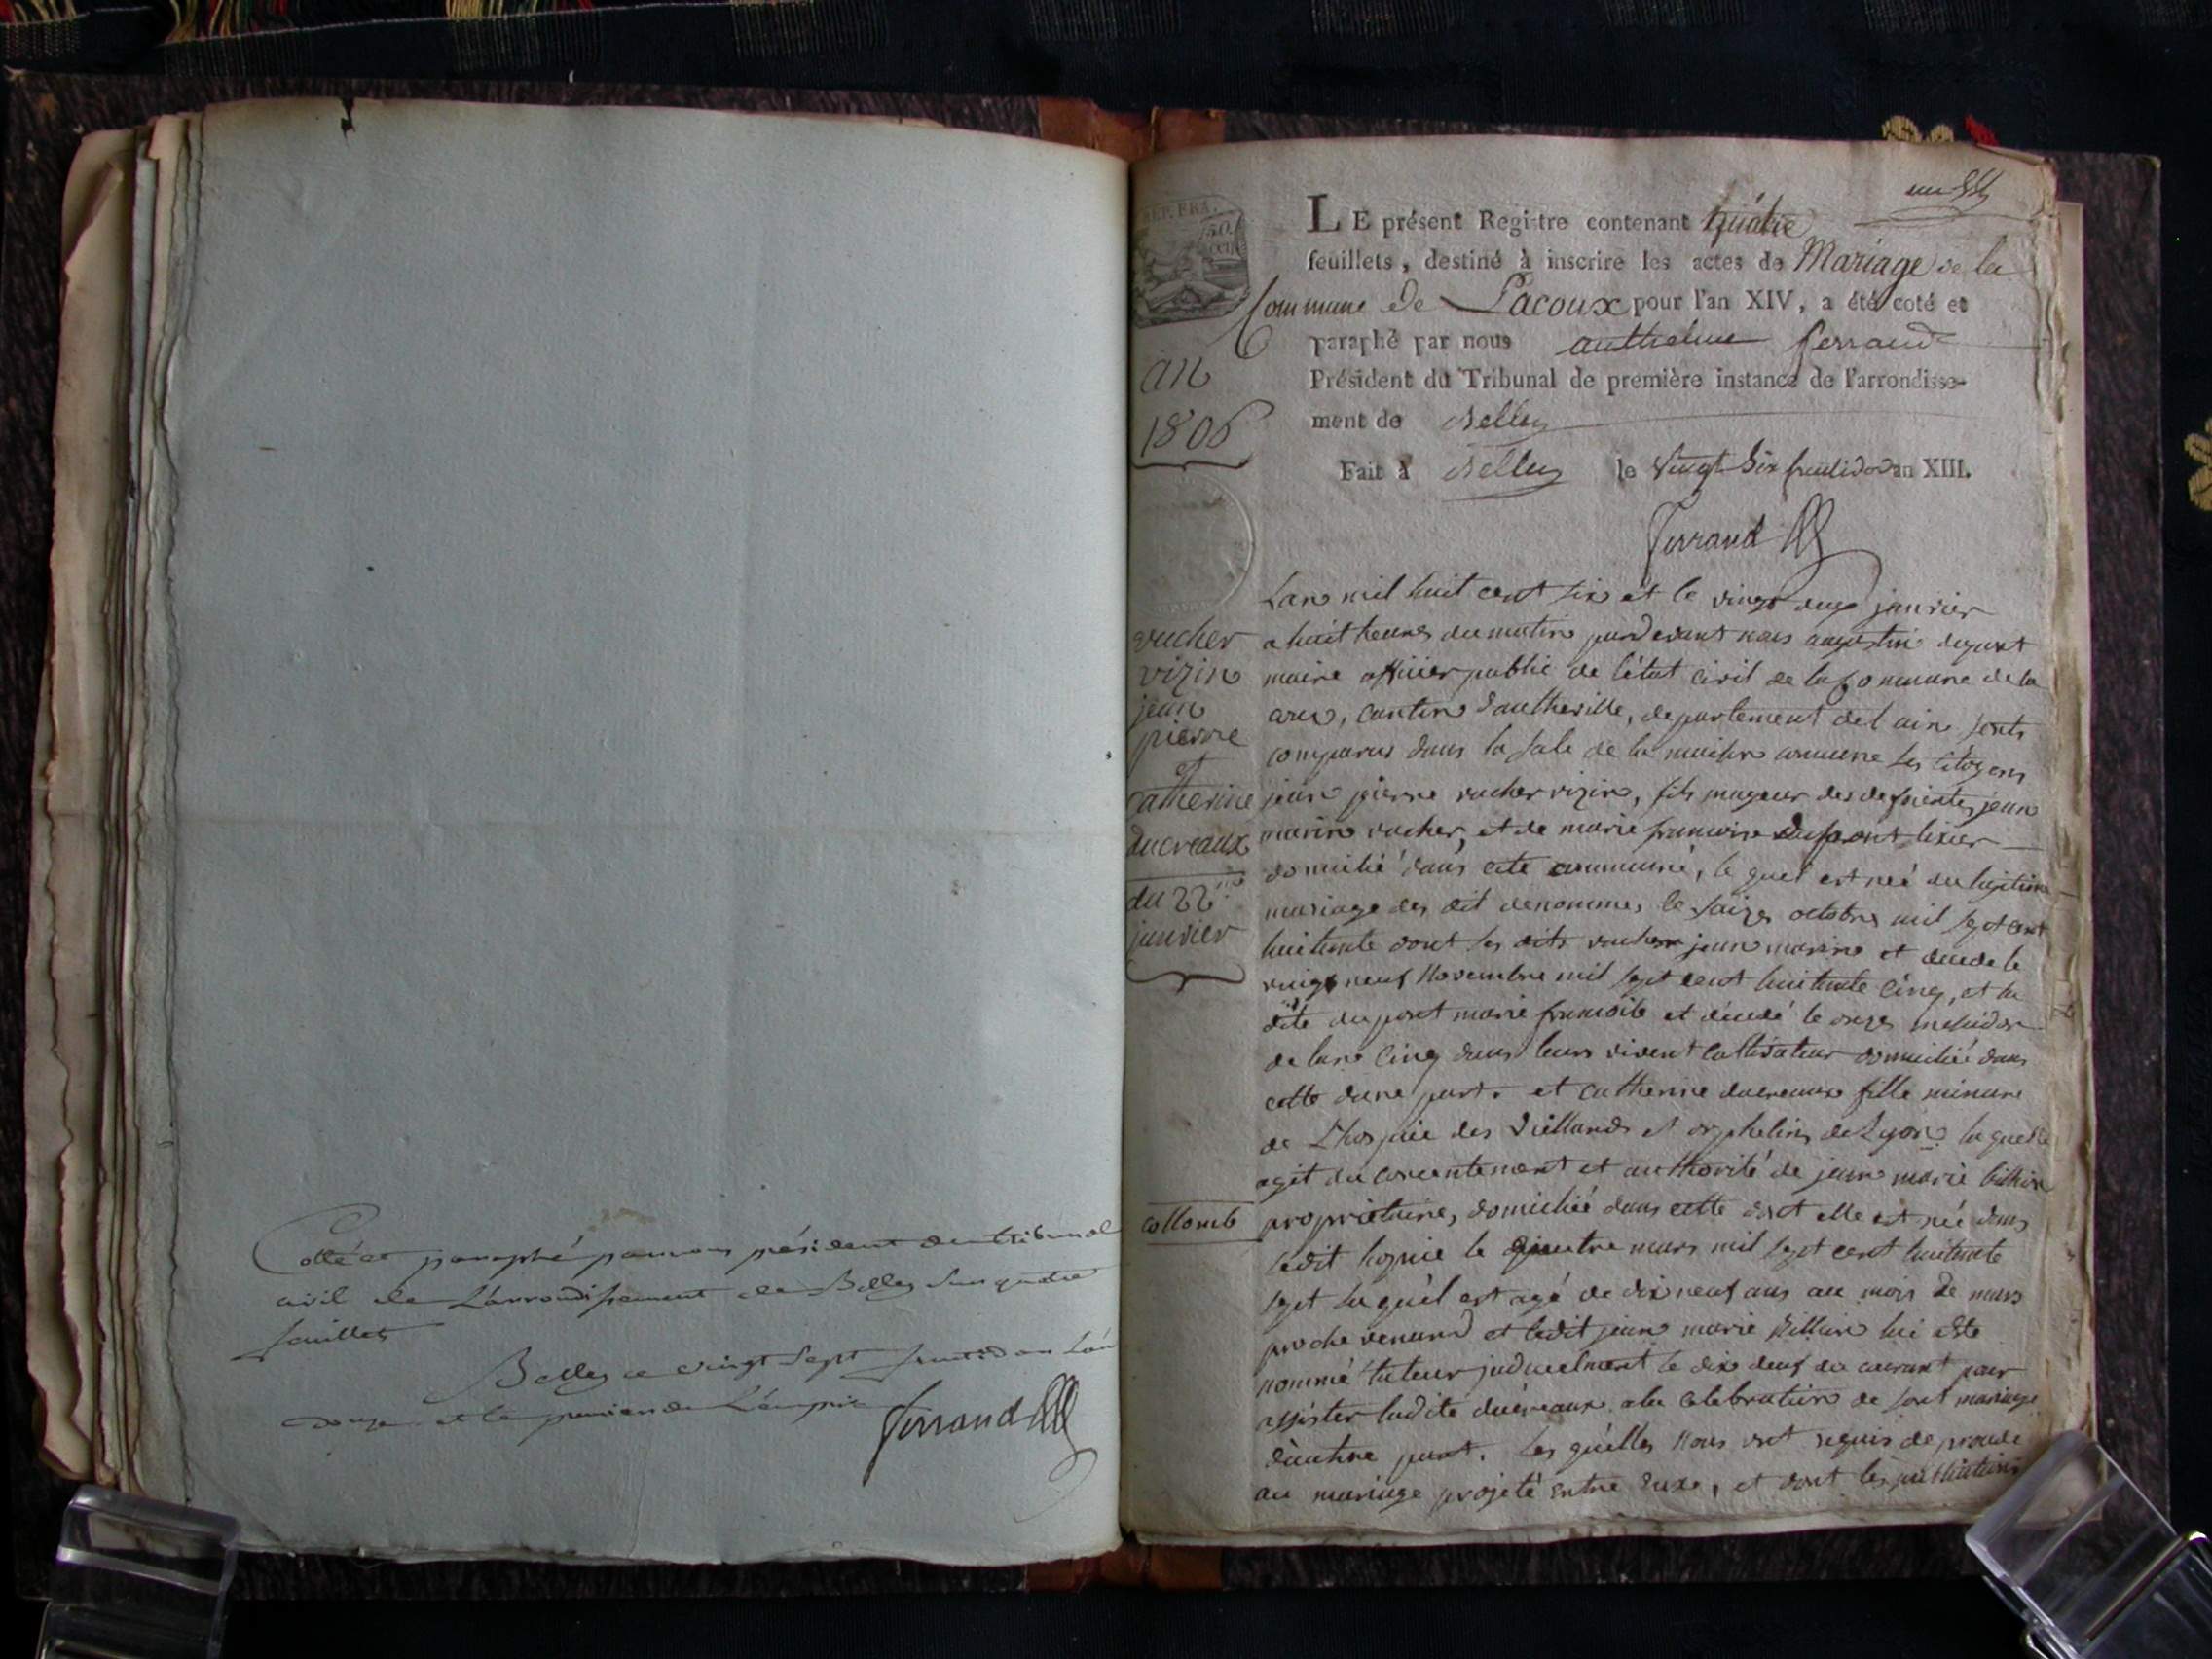 Cotté et paraphé par nous président du tribunal
civil de L'arrondissement de Belley sur quatre
feuillets
Belley ce vingt sept fructidor L'an
douze et le premier de L'empire
Ferrand
REP. FRA.
50
an
1806
vucher
vizin
jean
pierre
et
catherine
ducreaux
du 22me
janvier
collomb
LE présent Registre contenant quatre
feuillets, destiné à inscrire les actes de Mariage de la
Commune de Lacoux pour l'an XIV, a été coté et
paraphé par nous anthelme ferrand
Président du Tribunal de première instance de l'arrondisse-
ment de Belley
Fait à Belley le vingt Six fructidor an XIII.
Ferrand
Lan mil huit cent six et le vingt deux janvier
a huit heures du matin pardevant nous augustin dupont
maire officier public de l'état civil de la Commune de la
cous, canton d'autheville, departement de l ain sonts
comparus dans la sale de la maison comune les citoyens
jean pierre vucher vizin, fils mageur des defuients jean
marin vucher, et de marie francoise dupont lixier
domicilié dans cete commune, le quel est neé du legitime
mariage des dit denommes le saize octobre mil sept cent
huitante dont les dits vucher jean marin et decede le
vingt neuf novembre mil sept cent huitante cinq, et la
dite dupont marie francoise et décédé le onze mesidor
de lan cinq dans leurs vivent cultivateur domicilié dans
cette dune part. et catherine ducreaux fille minure
de L'hospice des Viellards et orphelins de Lyon la quelle
agit du consentement et authorité de jean marie billion
propriétaire, domicilié dans cette dont elle est neé dans
ledit hospice le quatre mars mil sept cent huitante
sept la quél est agé de dix neuf ans au mois de mars
proche venand et ledit jean marie billion lui este
nommé tuteur le dix neuf du courant pour
assister ladite ducreaux a la celebration de sont mariage
d'autre part. les quélles nous ont requis de procede
au mariage projeté entre eux, et dont les publications